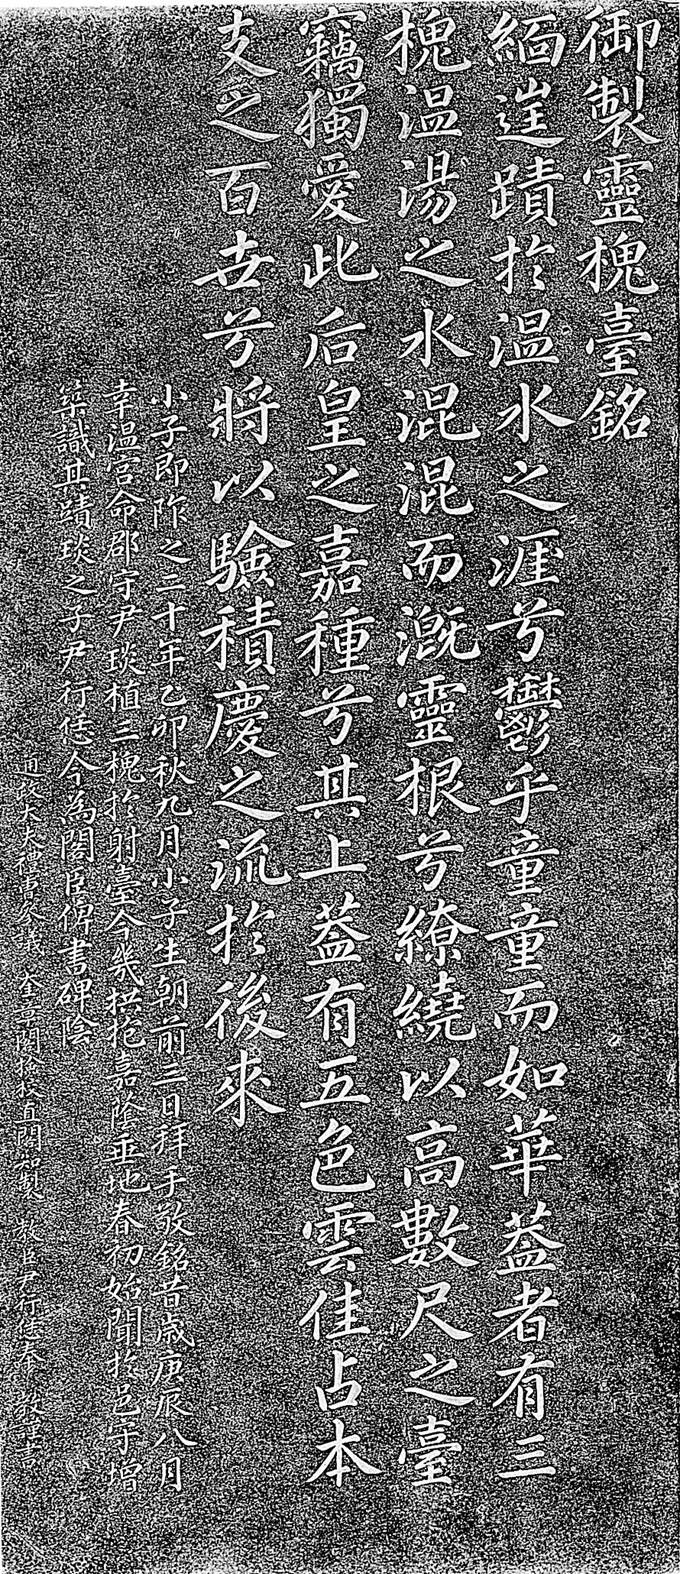 御製靈槐臺銘
緬䢖蹟於溫水之涯兮鬱乎童童而如華葢者有三
槐溫湯之水混混而漑靈根兮繚繞以高數尺之臺
竊獨愛此后皇之嘉種兮其上葢有五色雲佳占本
支之百世兮將以驗積慶之流於後來
小子即阼之二十年乙卯秋九月小子生朝前三日拜手敬銘昔歲庚辰八月
幸溫宮命郡守尹琰植三槐於射臺今幾拱抱嘉蔭垂地春初始聞於邑守增
築識其蹟琰之子尹行恁今為閣臣俾書碑陰
通政大夫禮曹參議 奎章閣檢校直閣知製 敎臣尹行恁奉 敎謹書